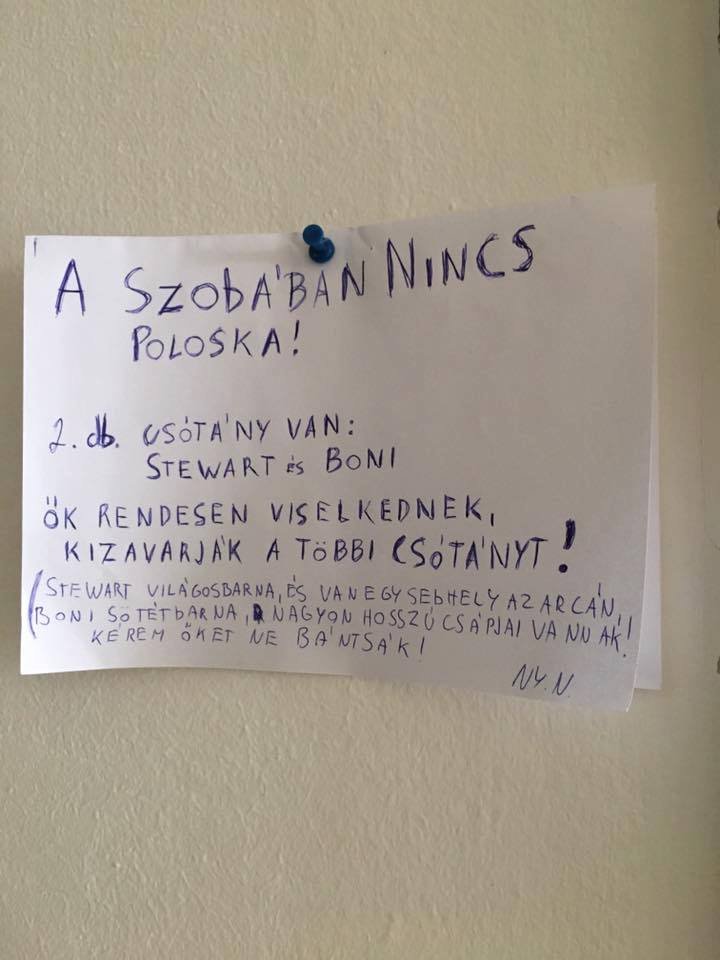 A SZOBÁBAN NINCS
POLOSKA!
2. db. CSÓTÁNY VAN:
STEWART és BONI
ŐK RENDESEN VISELKEDNEK,
KIZAVARJÁK A TÖBBI CSÓTÁNYT!
(STEWART VILÁGOSBARNA, ÉS VAN EGY SEBHELY AZ ARCÁN,
BONI SÖTÉTBARNA, NAGYON HOSSZÚ CSÁPJAI VANNAK!
KÉREM ŐKET NE BÁNTSÁK!
NY.N.